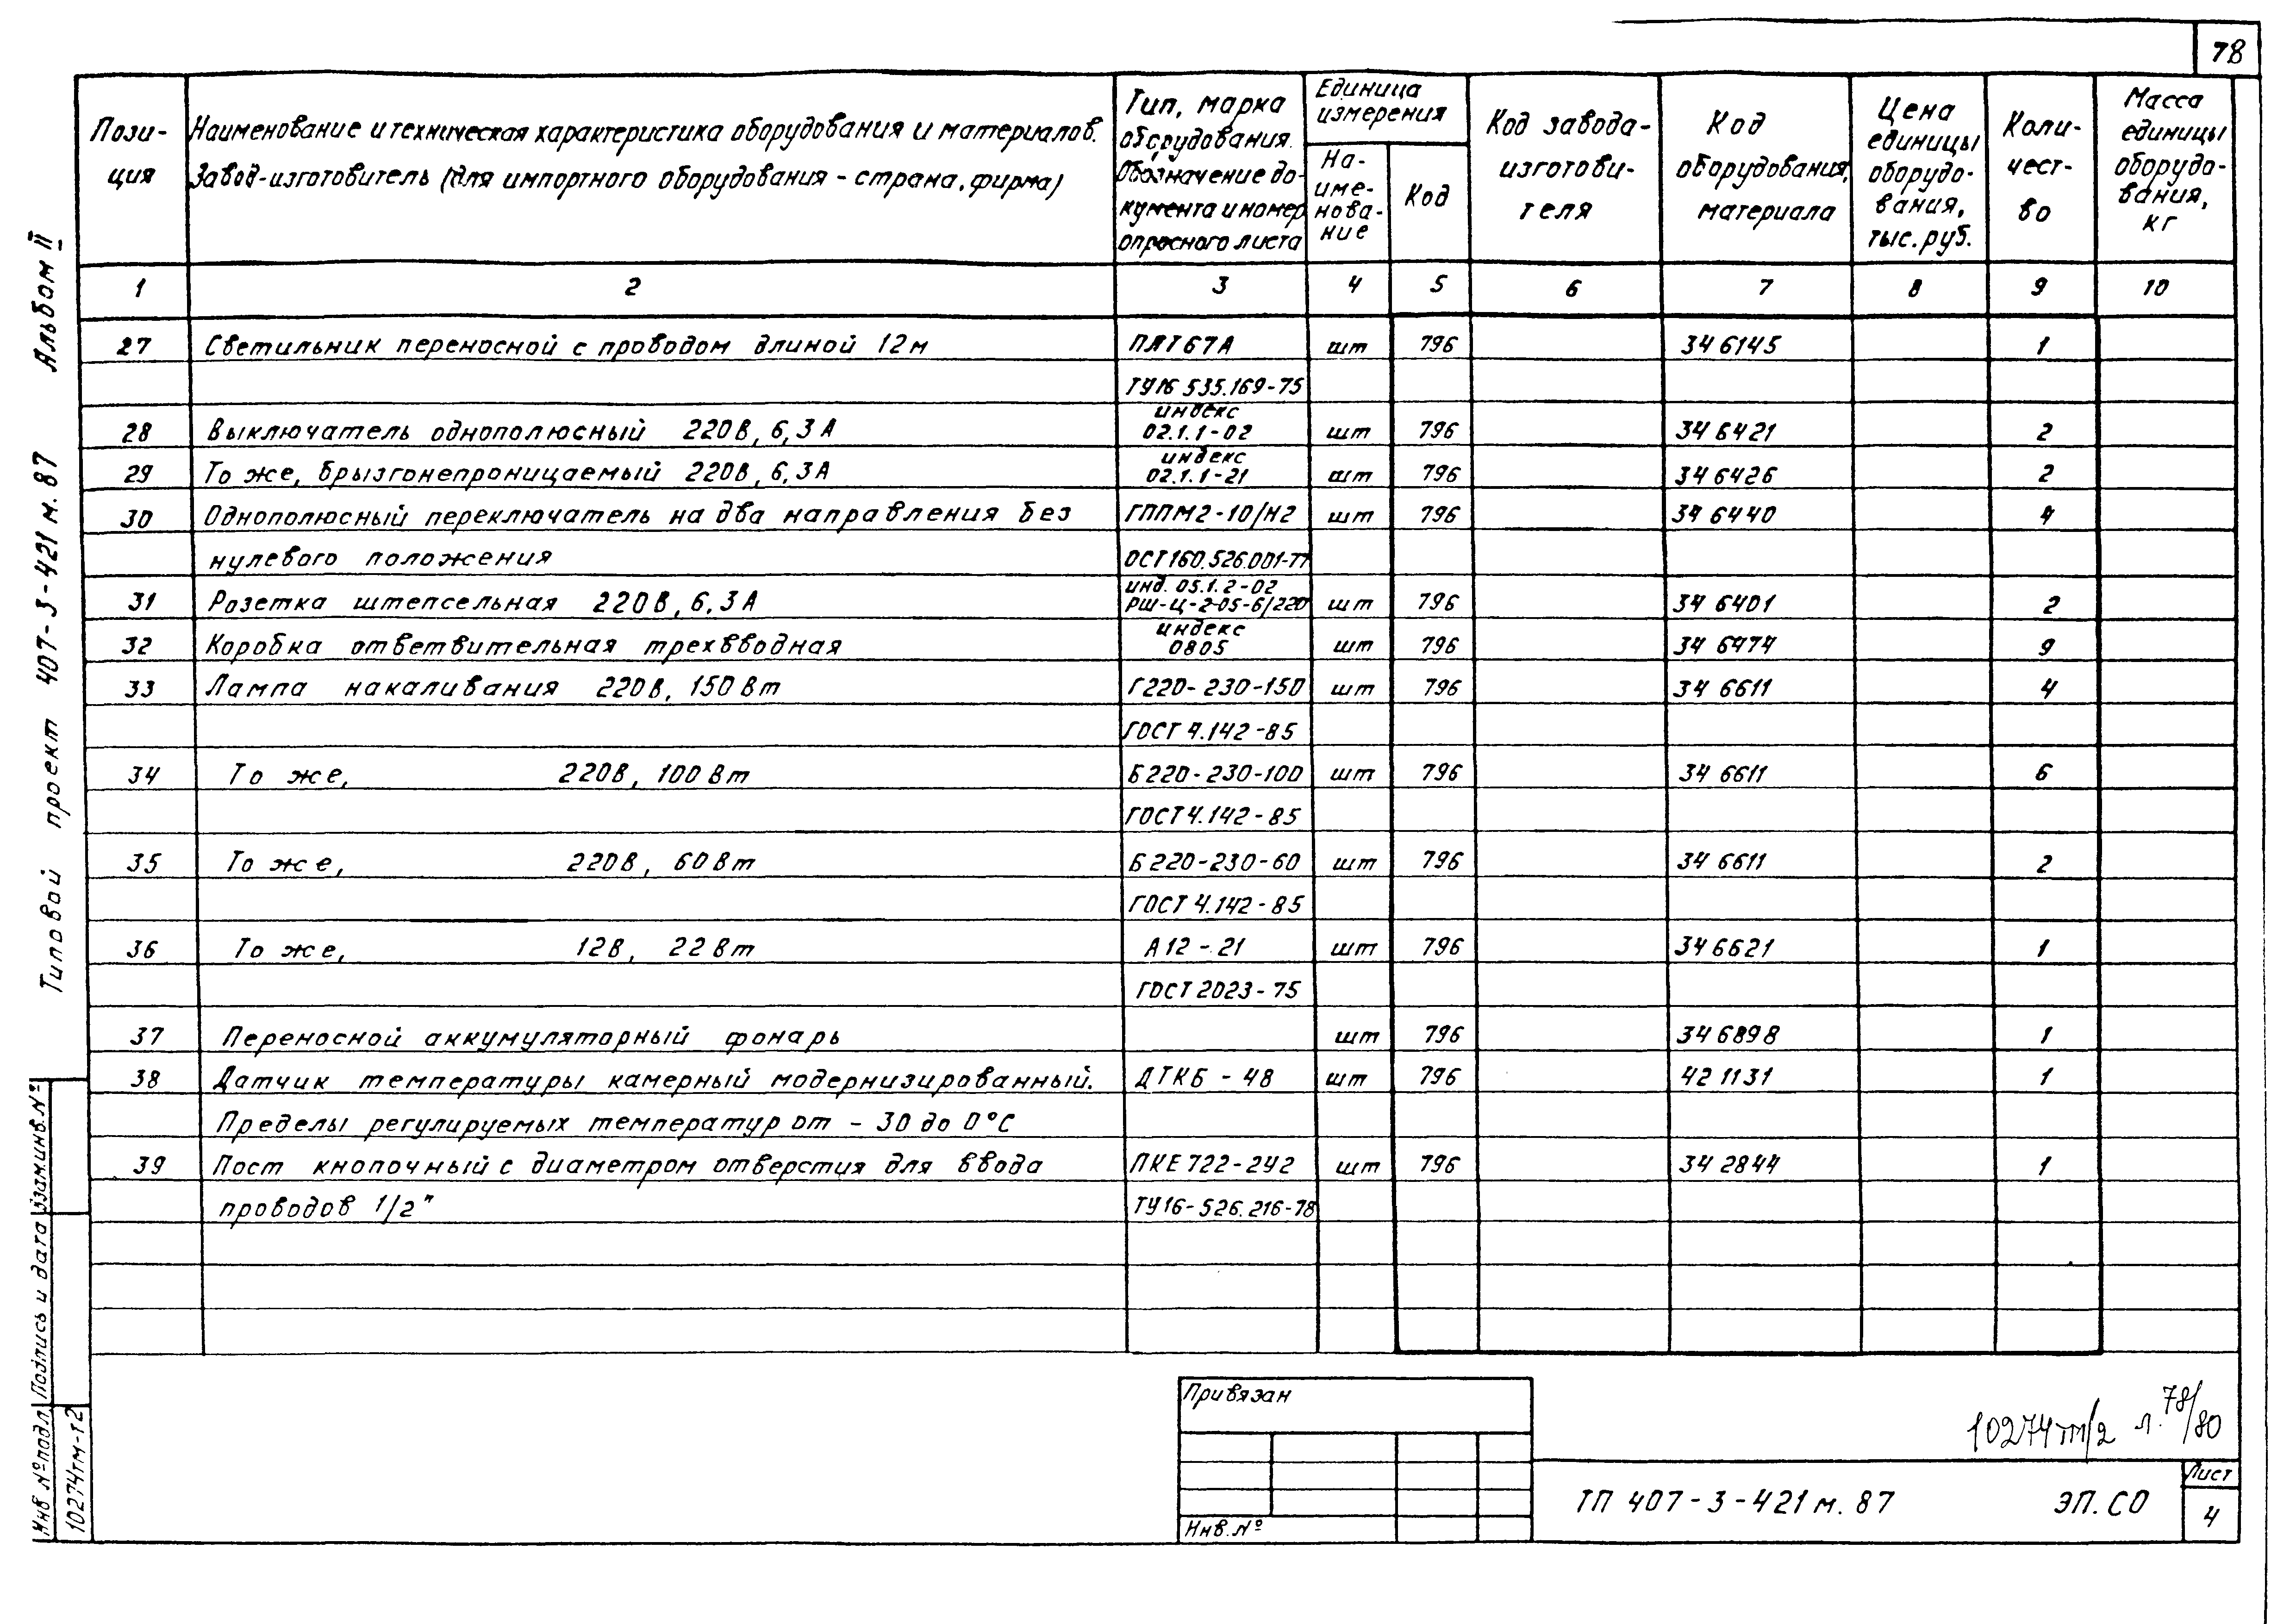 78
Пози-
ция
Наименование и техническая характеристика оборудования и материалов.
Завод-изготовитель (для импортного оборудования - страна, фирма)
Тип, марка
оборудования.
Обозначение до-
кумента и номер
опросного листа
Единица
измерения
На-
име-
нова-
ние
Код
Код завода-
изготови-
теля
Код
оборудования,
материала
Цена
единицы
оборудо-
вания,
тыс. руб.
Коли-
чест-
во
Масса
единицы
оборудо-
вания,
кг
1 2 3 4 5 6 7 8 9 10
27 Светильник переносной с проводом длиной 12м ПЛТ67А шт 796 34 6145 1
ТУ16 535.169-75
индекс
28 Выключатель однополюсный 220В, 6,3А 02.1.1-02 шт 796 34 6421 2
индекс
29 То же, брызгонепроницаемый 220В, 6,3А 02.1.1-21 шт 796 34 6426 2
30 Однополюсный переключатель на два направления без ГППМ2-10/Н2 шт 796 34 6440 4
нулевого положения ОСТ160.526.001-77
инд. 05.1.2-02
31 Розетка штепсельная 220В, 6,3А РШ-Ц-2-05-6/220 шт 796 34 6401 2
индекс
32 Коробка ответвительная трехвводная 0805 шт 796 34 6474 9
33 Лампа накаливания 220В, 150Вт Г220-230-150 шт 796 34 6611 4
ГОСТ 4.142-85
34 То же, 220В, 100Вт Б220-230-100 шт 796 34 6611 6
ГОСТ 4.142-85
35 То же, 220В, 60Вт Б220-230-60 шт 796 34 6611 2
ГОСТ 4.142-85
36 То же, 12В, 22Вт А12-21 шт 796 34 6621 1
ГОСТ 2023-75
37 Переносной аккумуляторный фонарь шт 796 34 6898 1
38 Датчик температуры камерный модернизированный. ДТКБ-48 шт 796 42 1131 1
Пределы регулируемых температур от -30 до 0°С
39 Пост кнопочный с диаметром отверстия для ввода ПКЕ 722-2У2 шт 796 34 2844 1
проводов 1/2" ТУ16-526.216-78
Типовой проект 407-3-421м.87 Альбом II
Инв №подл Подпись и дата Взам.инв.№
10274тм-т2
Привязан
Инв.№
10274тм/2 л. 78/80
ТП 407-3-421м.87 ЭП.СО
Лист
4